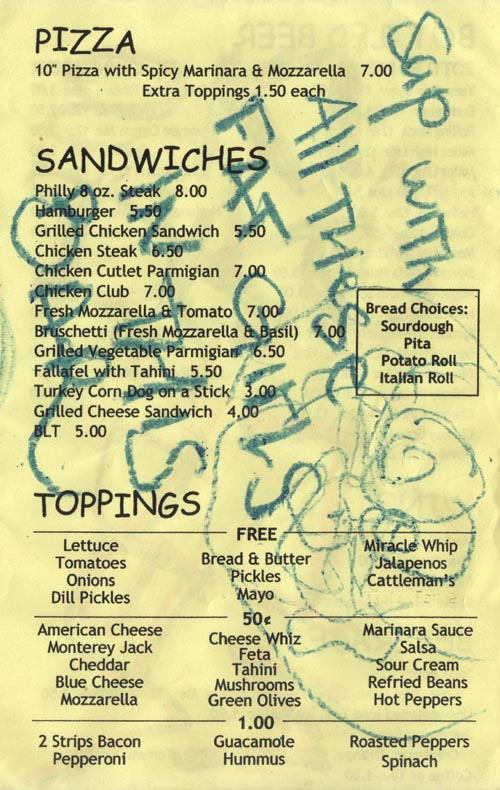 PIZZA
10" Pizza with Spicy Marinara & Mozzarella 7.00
Extra Toppings 1.50 each
SANDWICHES
Philly 8 oz. Steak 8.00
Hamburger 5.50
Grilled Chicken Sandwich 5.50
Chicken Steak 6.50
Chicken Cutlet Parmigian 7.00
Chicken Club 7.00
Fresh Mozzarella & Tomato 7.00
Bruschetti (Fresh Mozzarella & Basil) 7.00
Grilled Vegetable Parmigian 6.50
Fallafel with Tahini 5.50
Turkey Corn Dog on a Stick 3.00
Grilled Cheese Sandwich 4.00
BLT 5.00
Bread Choices:
Sourdough
Pita
Potato Roll
Italian Roll
TOPPINGS
FREE
Lettuce
Tomatoes
Onions
Dill Pickles
Bread & Butter
Pickles
Mayo
Miracle Whip
Jalapenos
Cattleman's
50¢
American Cheese
Monterey Jack
Cheddar
Blue Cheese
Mozzarella
Cheese Whiz
Feta
Tahini
Mushrooms
Green Olives
Marinara Sauce
Salsa
Sour Cream
Refried Beans
Hot Peppers
1.00
2 Strips Bacon
Pepperoni
Guacamole
Hummus
Roasted Peppers
Spinach
Sup WITH
All THese
FAT GIRLS
IN